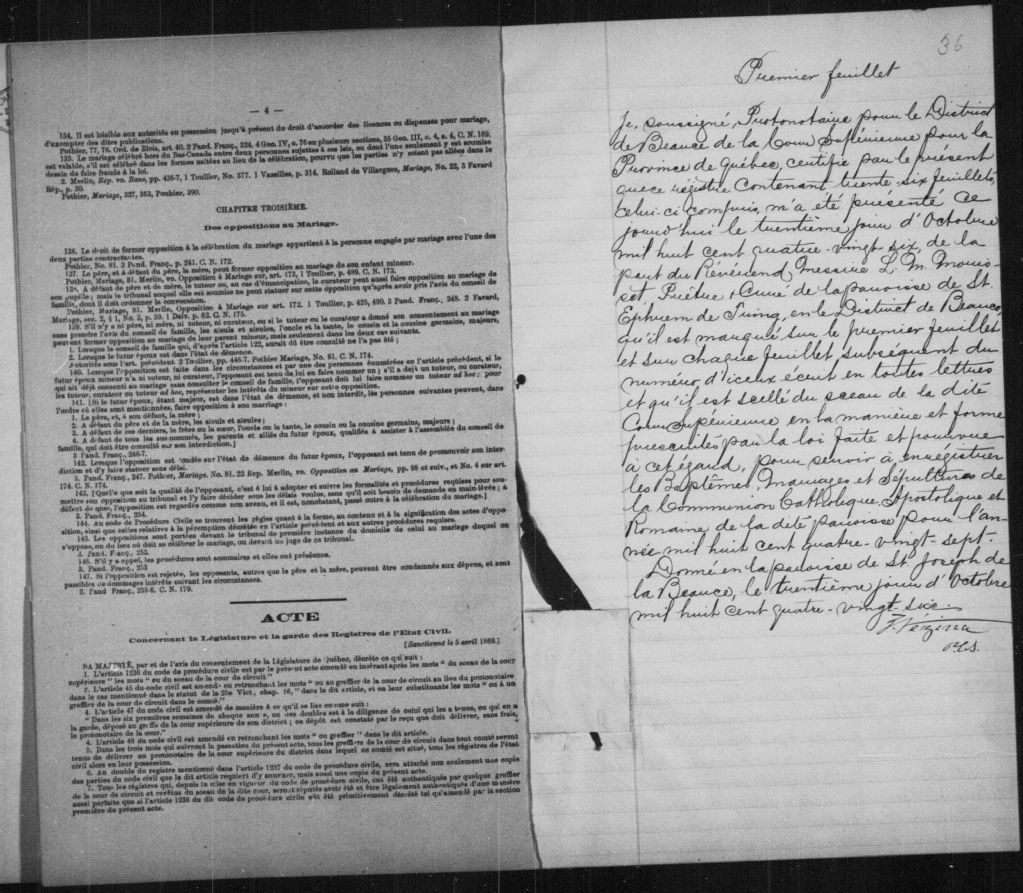 — 4 —
154. Il est loisible aux autorités en possession jusqu'à présent du droit d'accorder des licences ou dispenses pour mariage,
d'exempter des dites publications.
Pothier, 77, 78. Ord. de Blois, art. 40. 2 Pand. Franç., 224. 4 Geo. IV, c. 76 en plusieurs sections, 35 Geo. III, c. 4, s. 4, C. N. 169.
135. Le mariage célébré hors du Bas-Canada entre deux personnes sujettes à ses lois, ou dont l'une seulement y est soumise
est valable, s'il est célébré dans les formes usitées au lieu de la célébration, pourvu que les parties n'y soient pas allées dans le
dessin de faire fraude à la loi.
2. Merlin, Rép. vo. Bans, pp. 436-7, 1 Toullier, No. 577. 1 Vazeilles, p. 314. Rolland de Villargues, Mariage, No. 22, 3 Favard
Rép., p. 30.
Pothier, Mariage, 327, 363, Pouhier, 390.
CHAPITRE TROISIÈME.
Des oppositions au Mariage.
136. Le droit de former opposition à la célébration du mariage appartient à la personne engagée par mariage avec l'une des
deux parties contractantes.
Pothier, No. 81. 3 Pand. Franç., p. 241. C. N. 172.
137. Le père, et à défaut du père, la mère, peut former opposition au mariage de son enfant mineur.
Pothier, Mariage, 81. Merlin, vo. Opposition à Mariage sur, art. 173, 1 Toullier, p. 489. C. N. 173.
138. A défaut de père et de mère, le tuteur ou, au cas d'émancipation, le curateur peut aussi faire opposition au mariage de
son pupille; mais le tribunal auquel elle est soumise ne peut statuer sur cette opposition qu'après avoir pris l'avis du conseil de
famille, dont il doit ordonner la convocation.
Pothier, Mariage, 81. Merlin, Opposition à Mariage sur art. 172. 1 Toullier, p. 425, 490. 3 Pand. Franç., 248. 2 Favard,
Mariage, sec. 2, § 1, No. 3, p. 59. 1 Delv. p. 62. C. N. 175.
139. S'il n'y a ni père, ni mère, ni tuteur, ni curateur, ou si le tuteur ou le curateur a donné son consentement au mariage
sans prendre l'avis du conseil de famille, les aïeuls et aïeules, l'oncle et la tante, le cousin et la cousine germains, majeurs,
peuvent former opposition au mariage de leur parent mineur, mais seulement dans les deux cas suivants.
1. Lorsque le conseil de famille qui, d'après l'article 122, aurait dû être consulté ne l'a pas été;
2. Lorsque le futur époux est dans l'état de démence.
Autorités sous l'art. précédent. 2 Toullier, pp. 446-7. Pothier Mariage, No. 81. C. N. 174.
140. Lorsque l'opposition est faite dans les circonstances et par une des personnes énumérées en l'article précédent, si le
futur époux mineur n'a ni tuteur, ni curateur, l'opposant est tenu de lui en faire nommer un; s'il a déjà un tuteur, ou curateur,
qui ait déjà consenti au mariage sans consulter le conseil de famille, l'opposant doit lui faire nommer un tuteur ad hoc; pour
les tuteur, curateur ou tuteur ad hoc, représenter les intérêts du mineur sur cette opposition.
141. [Si le futur époux, étant majeur, est dans l'état de démence, et non interdit, les personnes suivantes peuvent, dans
l'ordre où elles sont mentionnées, faire opposition à son mariage:
1. Le père, et, à son défaut, la mère;
2. A défaut du père et de la mère, les aïeuls et aïeules;
3. A défaut de ces derniers, le frère ou la sœur, l'oncle ou la tante, le cousin ou la cousine germains, majeurs;
4. A défaut de tous les sus-nommés, les parents et alliés du futur époux, qualifiés à assister à l'assemblée du conseil de
famille, qui doit être consulté sur son interdiction.]
3 Pand. Franç., 246-7.
142. Lorsque l'opposition est fondée sur l'état de démence du futur époux, l'opposant est tenu de promouvoir son inter-
diction et d'y faire statuer sans délai.
3. Pand. Franç., 247. Pothier, Mariage, No. 81. 22 Rep. Merlin, vo. Opposition au Mariage, pp. 98 et suiv., et No. 4 sur art
174. C. N. 174.
143. [Quelle que soit la qualité de l'opposant, c'est à lui à adopter et suivre les formalités et procédures requises pour sou-
mettre son opposition au tribunal et l'y faire décider sous les délais voulus, sans qu'il soit besoin de demande en main-levée; à
défaut de quoi, l'opposition est regardée comme non avenu, et il est, nonobstant, passé outre à la célébration du mariage.]
3. Pand. Franç., 254.
144. Au code de Procédure Civile se trouvent les règles quant à la forme, au contenu et à la signification des actes d'oppo-
sition, ainsi que celles relatives à la péremption décrétée en l'article précédent et aux autres procédures requises.
145. Les oppositions sont portées devant le tribunal de première instance du domicile de celui au mariage duquel on
s'oppose, ou du lieu où doit se célébrer le mariage, ou devant un juge de ce tribunal.
3. Pand. Franç., 253.
146. S'il y a appel, les procédures sont sommaires et elles ont préséance.
3. Pand. Franç., 253
147. Si l'opposition est rejetée, les opposants, autres que le père et la mère, peuvent être condamnés aux dépens, et sont
passibles de dommages intérêts suivant les circonstances.
3. Pand Franç., 255-6. C. N. 179.
ACTE
Concernant la Législature et la garde des Registres de l'Etat Civil.
[Sanctionné le 5 avril 1869.]
SA MAJESTÉ, par et de l'avis du consentement de la Législature de Québec, décrète ce qui suit:
1. L'article 1236 du code de procédure civile est par le présent acte amendé en insérant après les mots "du sceau de la cour
supérieure" les mots "ou du sceau de la cour de circuit."
2. L'article 45 du code civil est amendé en retranchant les mots "ou au greffier de la cour de circuit au lieu du protonotaire
dans le cas mentionné dans le statut de la 25e Vict., chap. 16," dans le dit article, et en leur substituants les mots "ou à un
greffier de la cour de circuit dans le comté."
4. L'article 47 du code civil est amendé de manière à ce qu'il se lise comme suit:
"Dans les six premières semaines de chaque année, un des doubles est à la diligence de celui qui les a tenus, ou qui en a
la garde, déposé au greffe de la cour supérieure de son district; ce dépôt est constaté par le reçu que doit délivrer, sans frais,
le protonotaire de la cour."
4. L'article 48 du code civil est amendé en retranchant les mots "ou greffier" dans le dit article.
5. Dans les trois mois qui suivront la passation du présent acte, tous les greffiers de la cour de circuit dans tout comté seront
tenus de délivrer au protonotaire de la cour supérieure du district dans lequel ce comté est situé, tous les régistres de l'état
civil alors en leur possession.
6. Au double du registre mentionné dans l'article 1237 du code de procédure civile, sera attaché non seulement une copie
des parties du code civil que le dit article requiert d'y annexer, mais aussi une copie du présent acte.
7. Tous les régistres qui, depuis la mise en vigueur du code de procédure civile, ont été authentiqués par quelque greffier
de la cour de circuit et revêtus du sceau de la dite cour, seront réputés avoir été et être légalement authentiqués d'une manière
aussi parfaite que si l'article 1236 du dit code de procédure civile eût été primitivement décrété tel qu'amendé par la section
première du présent acte.
36
Premier feuillet
Je, soussigné, Protonotaire pour le District
de Beauce de la Cour Supérieure pour la
Province de Québec, certifie par le présent
que ce régistre contenant trente-six feuillets,
celui-ci compris, m'a été présenté ce
jourd'hui le trentième jour d'Octobre
mil huit cent quatre-vingt-six de la
part du Révérend Messire L. M. Moris-
set Prêtre & Curé de la paroisse de St.
Ephrem de Tring, en le District de Beauce,
qu'il est marqué sur le premier feuillet
et sur chaque feuillet subséquent du
numéro d'iceux écrit en toutes lettres
et qu'il est scellé du sceau de la dite
Cour Supérieure en la manière et forme
prescrites par la loi faite et pourvue
à cet égard, pour servir à enregistrer
les Baptêmes, Mariages et Sépultures de
la Communion Catholique, Apostolique et
Romaine de la dite paroisse pour l'an-
née mil huit cent quatre-vingt-sept.
Donné en la paroisse de St. Joseph de
la Beauce, le trentième jour d'Octobre
mil huit cent quatre-vingt-six.
Vézina
P.C.S.